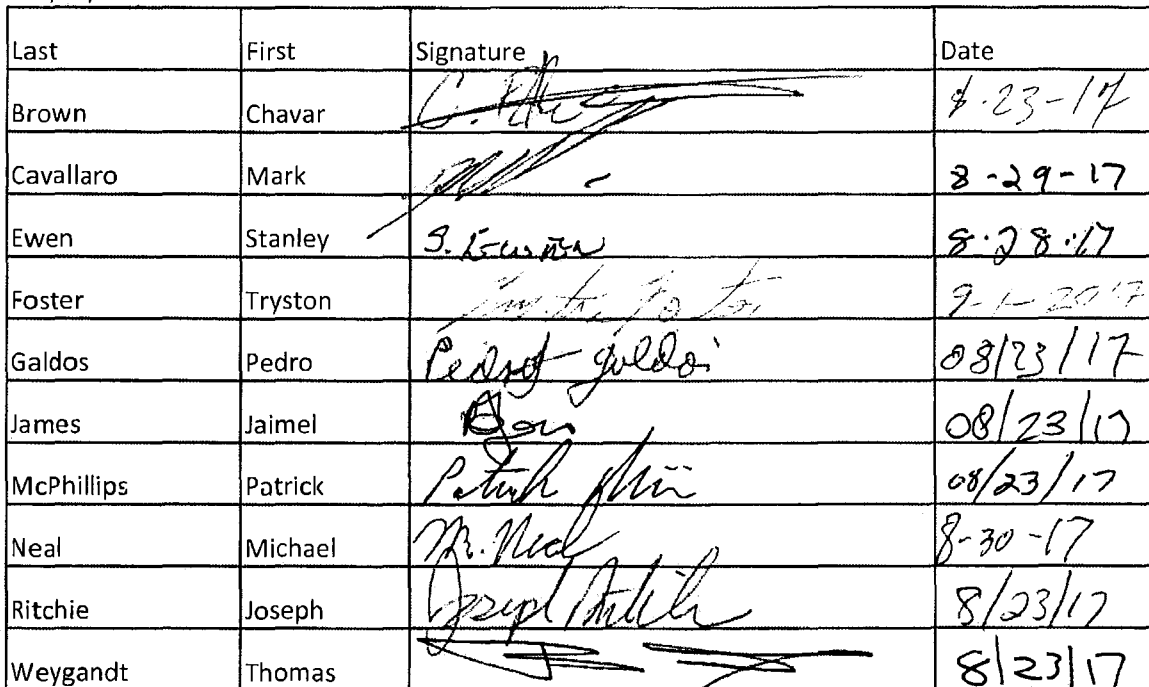 Last First Signature Date
Brown Chavar 8-23-17
Cavallaro Mark 8-29-17
Ewen Stanley S. 8-28-17
Foster Tryston 9-1-2017
Galdos Pedro Pedro Galdos 08/23/17
James Jaimel 08/23/17
McPhillips Patrick Patrick 08/23/17
Neal Michael M. Neal 8-30-17
Ritchie Joseph Joseph Ritchie 8/23/17
Weygandt Thomas 8/23/17